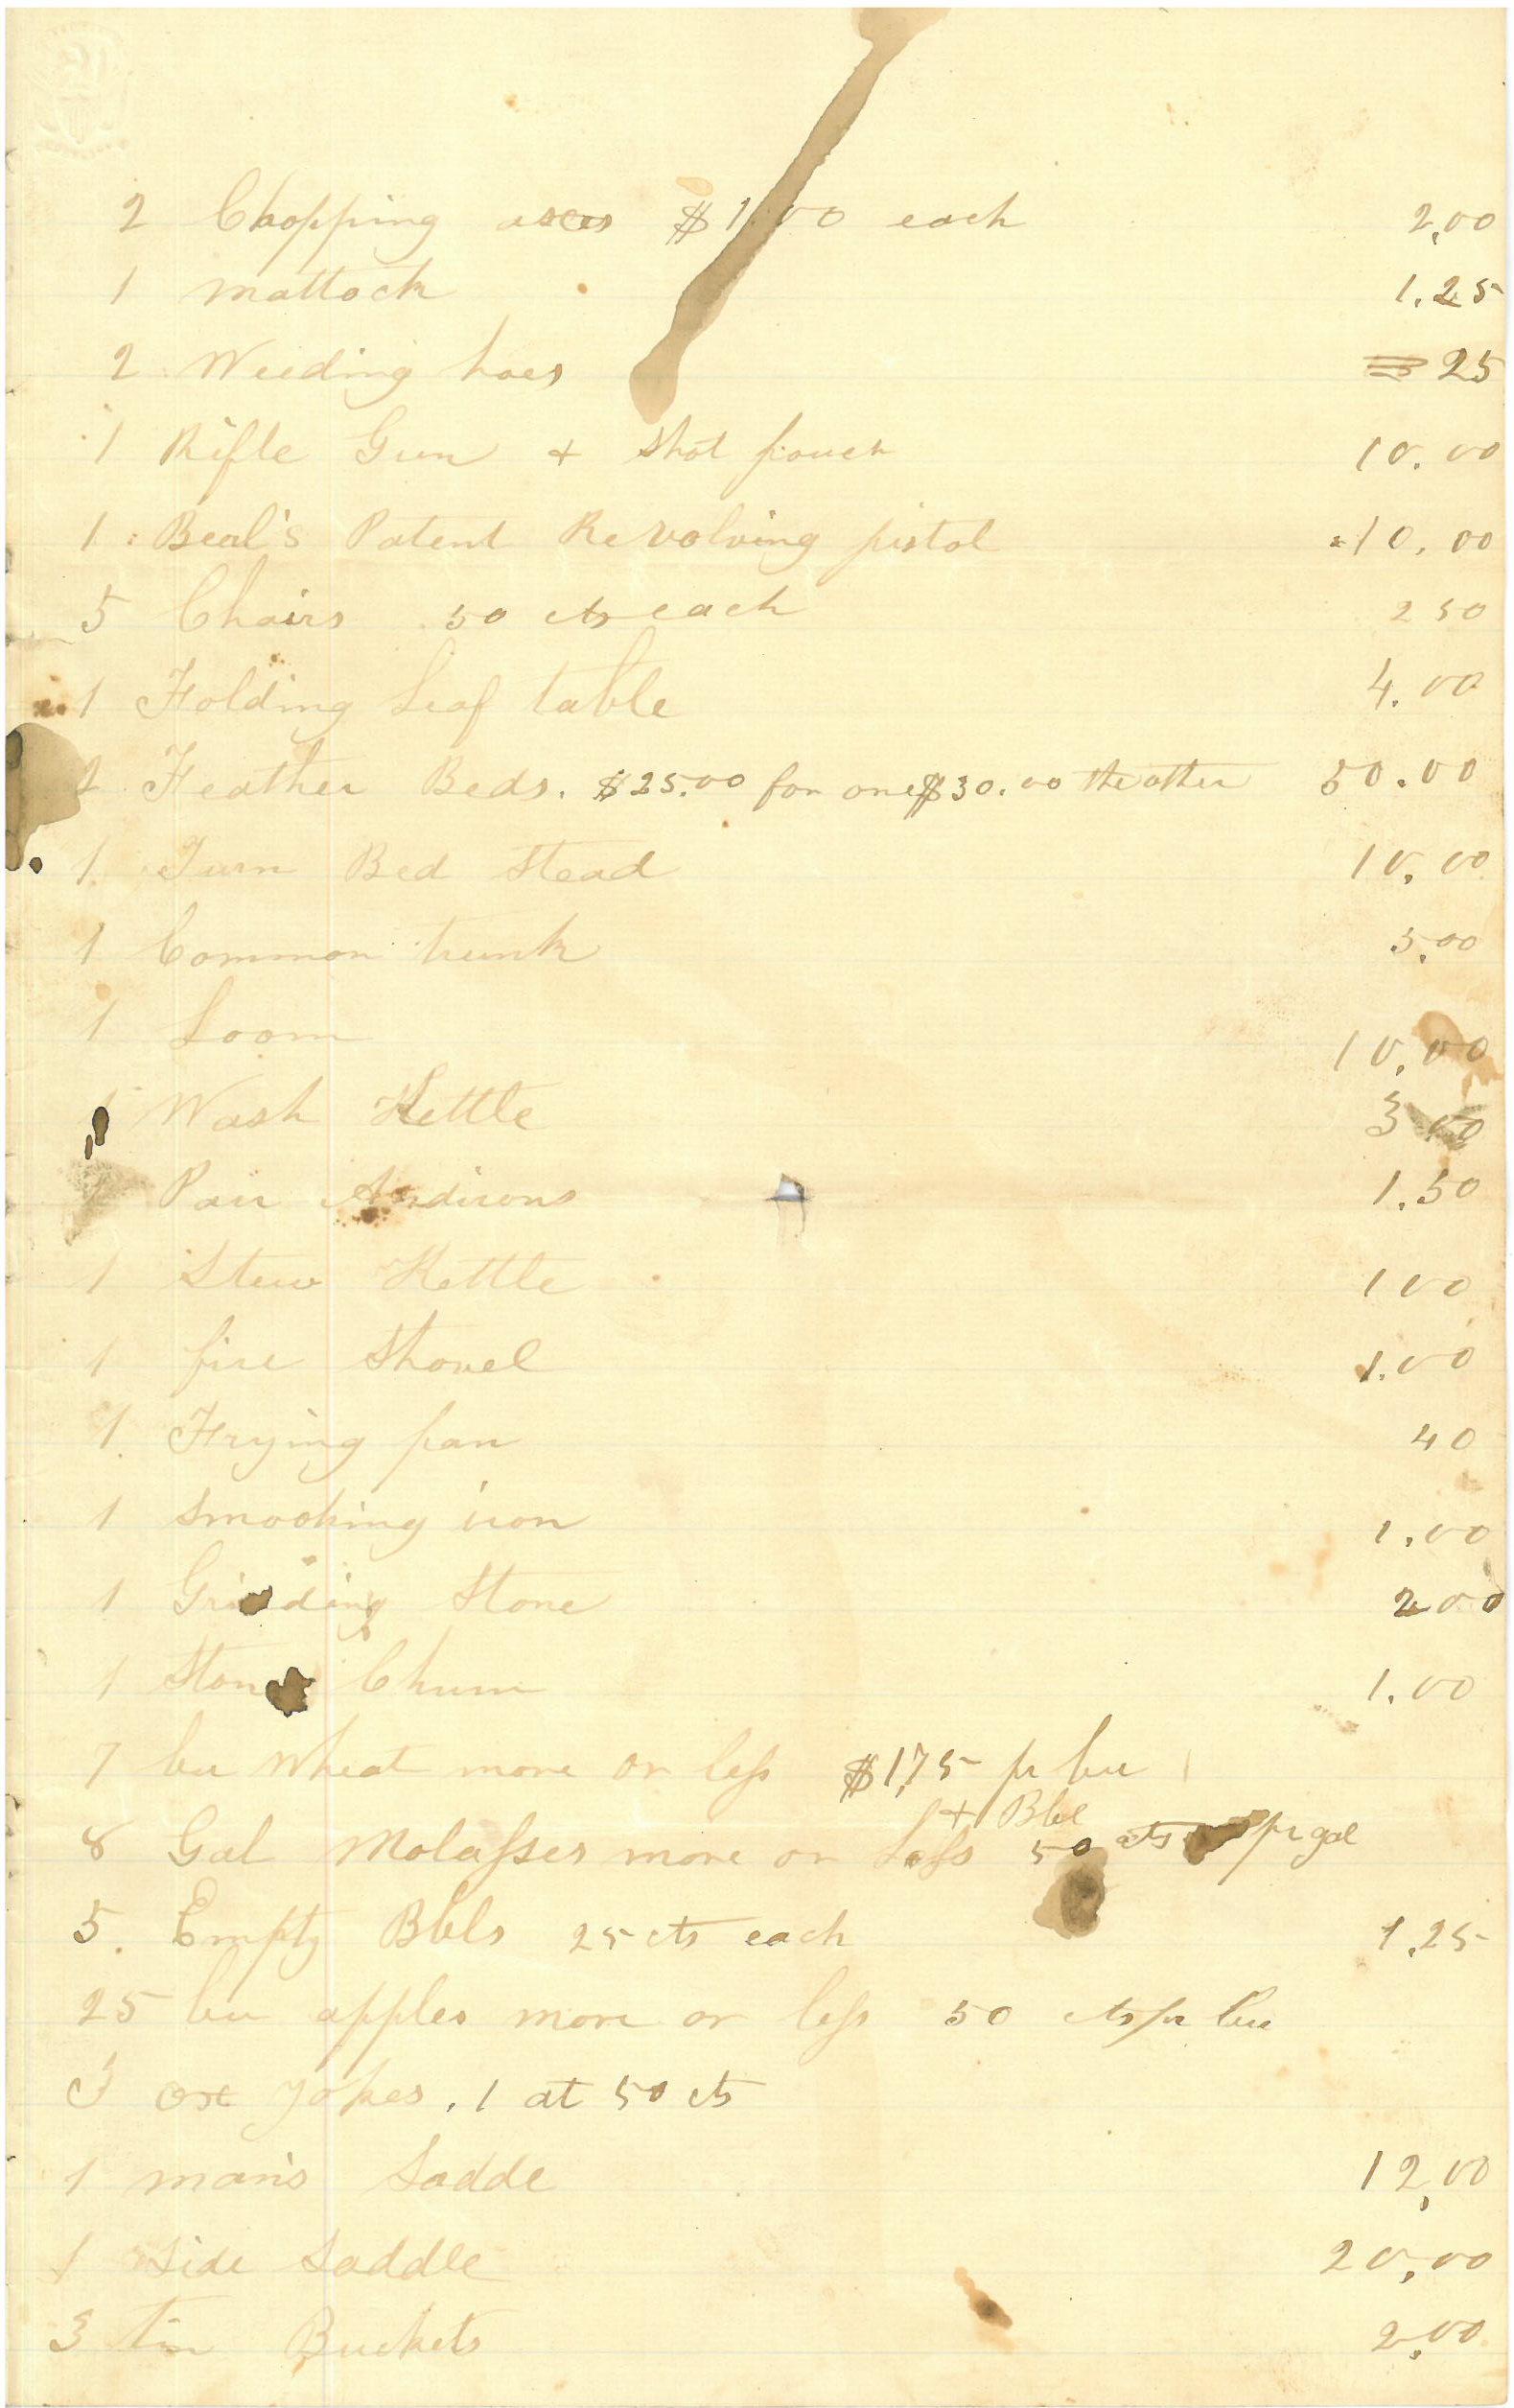 2 Chopping axes $1.00 each 2.00
1 mattock 1.25
2 Weeding hoes 25
1 Rifle Gun + Shot pouch 10.00
1 Beal's Patent Revolving pistol 10.00
5 Chairs 50 cts each 2 50
1 Folding Leaf table 4.00
2 Feather Beds. $25.00 for one $30.00 the other 50.00
1 Turn Bed Stead 10.00
1 Common trunk 5.00
1 Loom 10.00
1 Wash Kettle 3 00
1 Pair Andirons 1.50
1 Stew Kettle 1 00
1 fire Shovel 1.00
1 Frying pan 40
1 Smoothing iron 1.00
1 Grinding Stone 2 00
1 Stone Churn 1.00
7 bu Wheat more or less $1,75 pr bu
+ Bbl
8 Gal Molasses more or Less 50 cts pr gal
5. Empty Bbls 25 cts each 1.25
25 bu apples more or less 50 cts pr bu
3 ox Yokes. 1 at 50 cts
1 man's Sadde 12,00
1 Side Saddle 20,00
3 tin Buckets 2,00